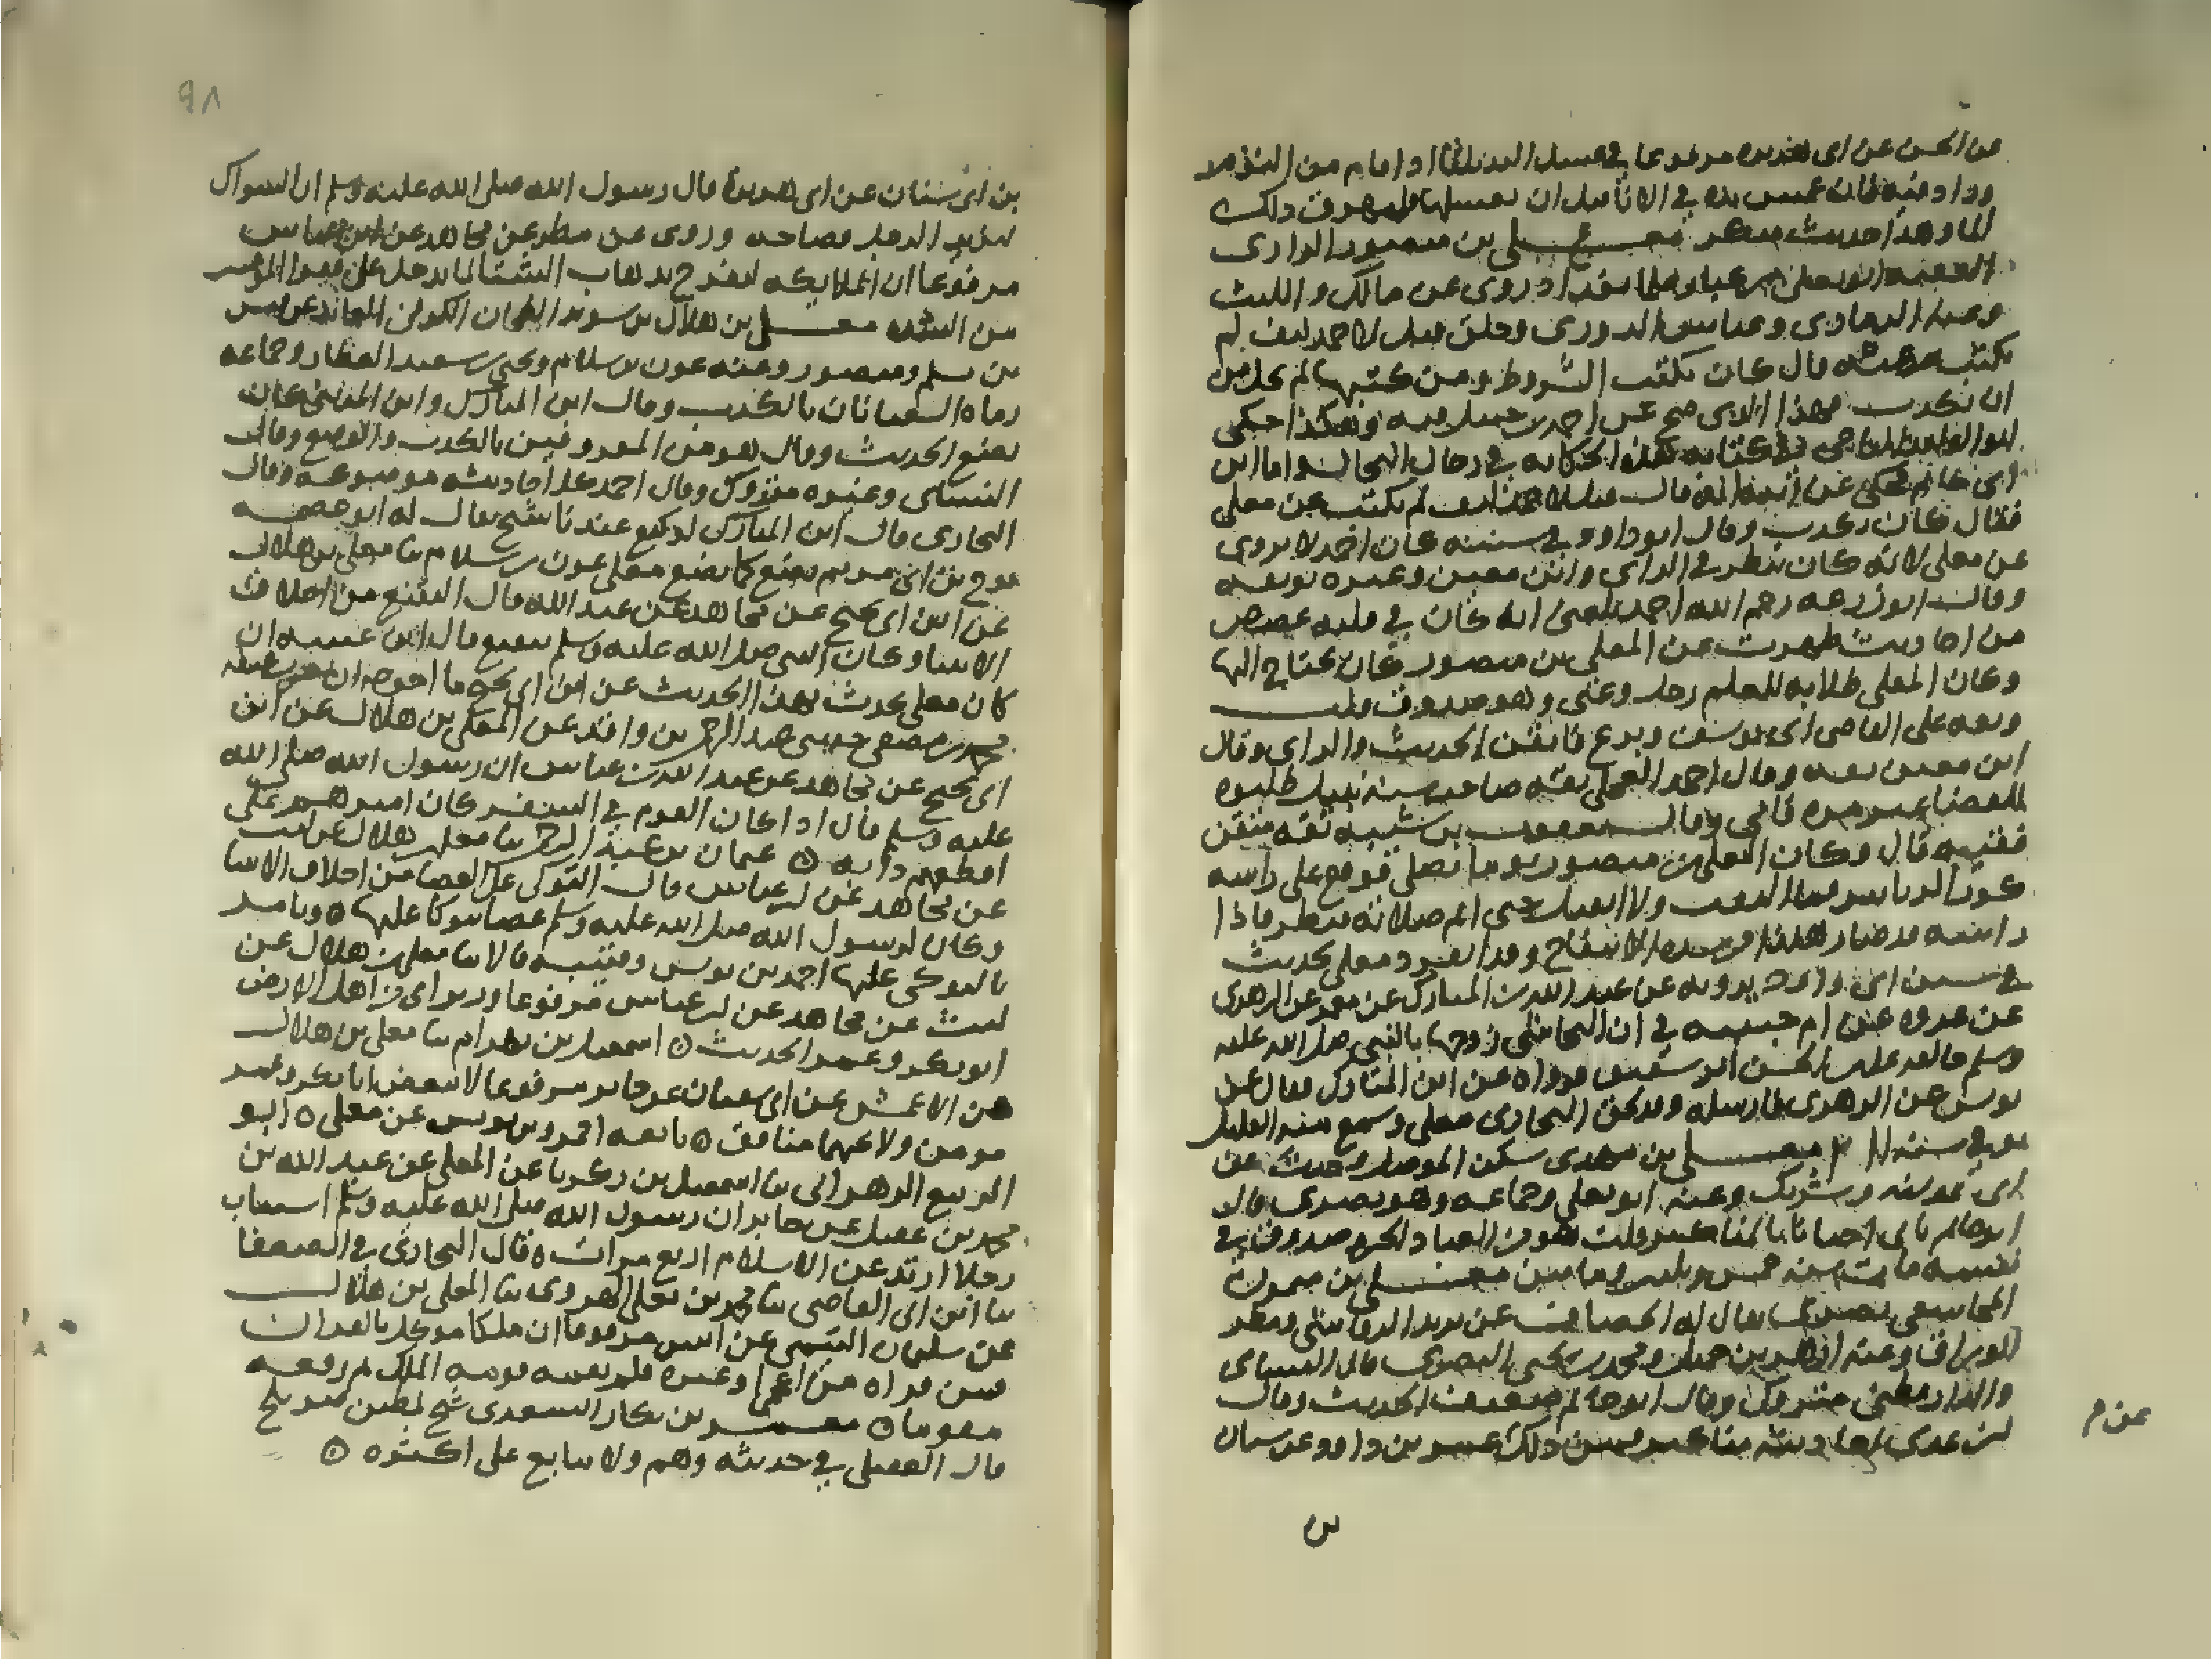 عن الحسن عن ابى هريره مرفوعا في غسل اليد ثلاثا اذا قام من النوم
وزاد فيه فان غمس يده في الاناء قبل ان يغسلها فليهرق ذلك
الما وهذا حديث منكر معلى بن منصور الرازى
الفقيه ابو يعلى روى عن مالك والليث
وعنه الرمادى وعباس الدورى وخلق قيل لاحمد كيف لم
تكتب عنه قال كان يكتب الشروط ومن كتبها لم يخل من
ان يكذب فهذا الذى صح عن احمد بن حنبل فيه وهكذا حكى
ابو الوليد الباجى في كتابه هذه الحكايه في رجال البخارى واما ابن
ابى حاتم فحكى عن ابيه انه قال قيل لاحمد كيف لم تكتب عن معلى
فقال كان يكذب وقال ابو داوود في سننه كان احمد لا يروى
عن معلى لانه كان ينظر في الراى وابن معين وغيره يوثقه
وقال ابو زرعه رحم الله احمد بلغنى انه كان في قلبه غصص
من احاديث ظهرت عن المعلى بن منصور كان يحتاج اليها
وكان المعلى طلابه للعلم رحل وعنى وهو صدوق قلت
وتفقه على القاضى ابى يوسف وبرع فاتقن الحديث والراى وقال
ابن معين ثقه وقال احمد العجلى ثقه صاحب سنه نبيل طلبوه
للقضا غير مره فابى وقال يعقوب بن شيبه ثقه متقن
فقيه قال وكان المعلى بن منصور يوما يصلى فوقع على راسه
كور الزنابير فما التفت ولا انفتل حتى اتم صلاته فنظر فاذا
راسه قد صار هكذا من شده الانتفاخ وقد انفرد معلى بحديث
في سنن ابى داود يرويه عن عبد الله بن المبارك عن معمر عن الزهرى
عن عروه عن ام حبيبه في ان النجاشى زوجها بالنبى صلى الله عليه
وسلم خالفه على بن الحسن بن شقيق فرواه عن ابن المبارك فقال عن
يونس عن الزهرى فارسله ولم يكن البخارى معلى وسمع منه القليل
توفي سنه ٢١١ معلى بن مهدى سكن الموصل وحدث عن
ابى عوانه وشريك وعنه ابو يعلى وجماعه وهو بصرى قال
ابو حاتم ياتى احيانا بالمناكير قلت هو من العباد الخيره صدوق في
نفسه مات سنه خمس وثلثين ومايتين معلى بن ميمون
المجاشعى بصرى يقال له الخصاف عن يزيد الرقاشى ومطر
الوراق وعنه ازهر بن جميل ومحمد بن يحيى البصرى قال النسائى
والدارقطنى متروك وقال ابو حاتم ضعيف الحديث وقال
ابن عدى احاديثه مناكير فمن ذلك عمير بن داود عن سنان
عن م
بن
٩٨
بن ابى سنان عن ابى هريرة قال رسول الله صلى الله عليه وسلم ان السواك
ليزيد الرجل فصاحه وروى عن مطر عن مجاهد عن ابن عباس
مرفوعا ان الملايكه لتفرح بذهاب الشتا لما يدخل على فقرا المؤمنين
من الشده معلى بن هلال بن سويد الطحان الكوفى العابد عن
بن مسلم ومنصور وعنه عون بن سلام ويحيى بن سعيد العطار وجماعه
رماه السفيانان بالكذب وقال ابن المبارك وابن المدينى كان
يضع الحديث وقال هو من المعروفين بالكذب والوضع وقال
النسائى وغيره متروك وقال احمد كل احاديثه موضوعه وقال
البخارى قال ابن المبارك لوكيع عندنا شيخ يقال له ابو عصمه
نوح بن ابى مريم يضع كما يضع معلى عون بن سلام ثنا معلى بن هلال
عن ابن ابى نجيح عن مجاهد عن عبد الله قال التقنع من اخلاق
الانبيا وكان النبى صلى الله عليه وسلم يتقنع قال ابن عيينه ان
كان معلى يحدث بهذا الحديث عن ابن ابى نجيح ما احوجه ان تضرب عنقه
محمد بن مصفى حدثنى عبد الرحمن بن واقد عن المعلى بن هلال عن ابن
ابى نجيح عن مجاهد عن عبد الله بن عباس ان رسول الله صلى الله
عليه وسلم قال اذا كان القوم في السفر كان اميرهم على
اقطفهم دابه ٥ عثمان بن عبد الرحمن ثنا معلى بن هلال عن ليث
عن مجاهد عن ابن عباس قال التوكى على العصا من اخلاق الانبيا
وكان لرسول الله صلى الله عليه وسلم عصا يتوكا عليها ٥ ويامر
بالتوكى عليها احمد بن يونس وقتيبه قالا ثنا معلى بن هلال عن
ليث عن مجاهد عن ابن عباس مرفوعا وزيراى من اهل الارض
ابو بكر وعمر الحديث ٥ اسمعيل بن بهرام ثنا معلى بن هلال
عن الاعمش عن ابى سفيان عن جابر مرفوعا لا يبغض ابا بكر وعمر
مومن ولا يحبهما منافق ٥ تابعه احمد بن يونس عن معلى ٥ ابو
الربيع الزهرانى ثنا اسمعيل بن زكريا عن المعلى عن عبد الله بن
محمد بن عقيل عن جابر ان رسول الله صلى الله عليه وسلم استتاب
رجلا ارتد عن الاسلام اربع مرات ٥ قال البخارى في الضعفا
ثنا ابن ابى القاضى ثنا محمد بن يعلى الهروى ثنا المعلى بن هلال
عن سليمان التيمى عن انس مرفوعا ان ملكا موكل بالقران
فمن قراه من اعجمى وغيره فلم يقمه قومه الملك ثم رفعه
مقوما ٥ معمر بن بكار السعدى شيخ لمطين صويلح
قال العقيلى في حديثه وهم ولا يتابع على اكثره ٥